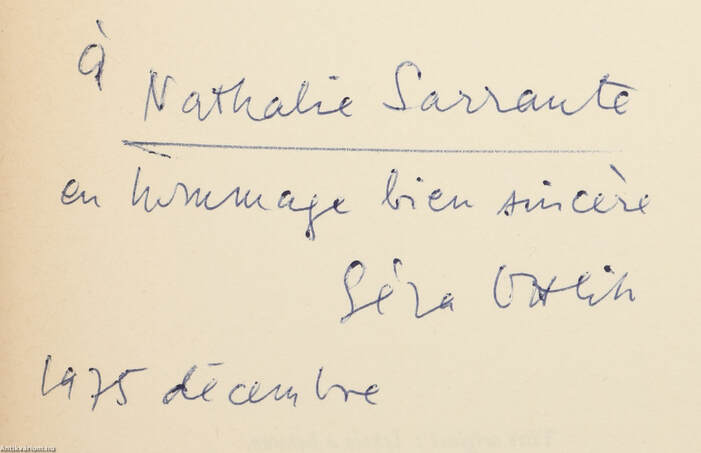 à
Nathalie Sarraute
en hommage bien sincère
Géza Ottlik
1975 décembre
Antikvarium.hu